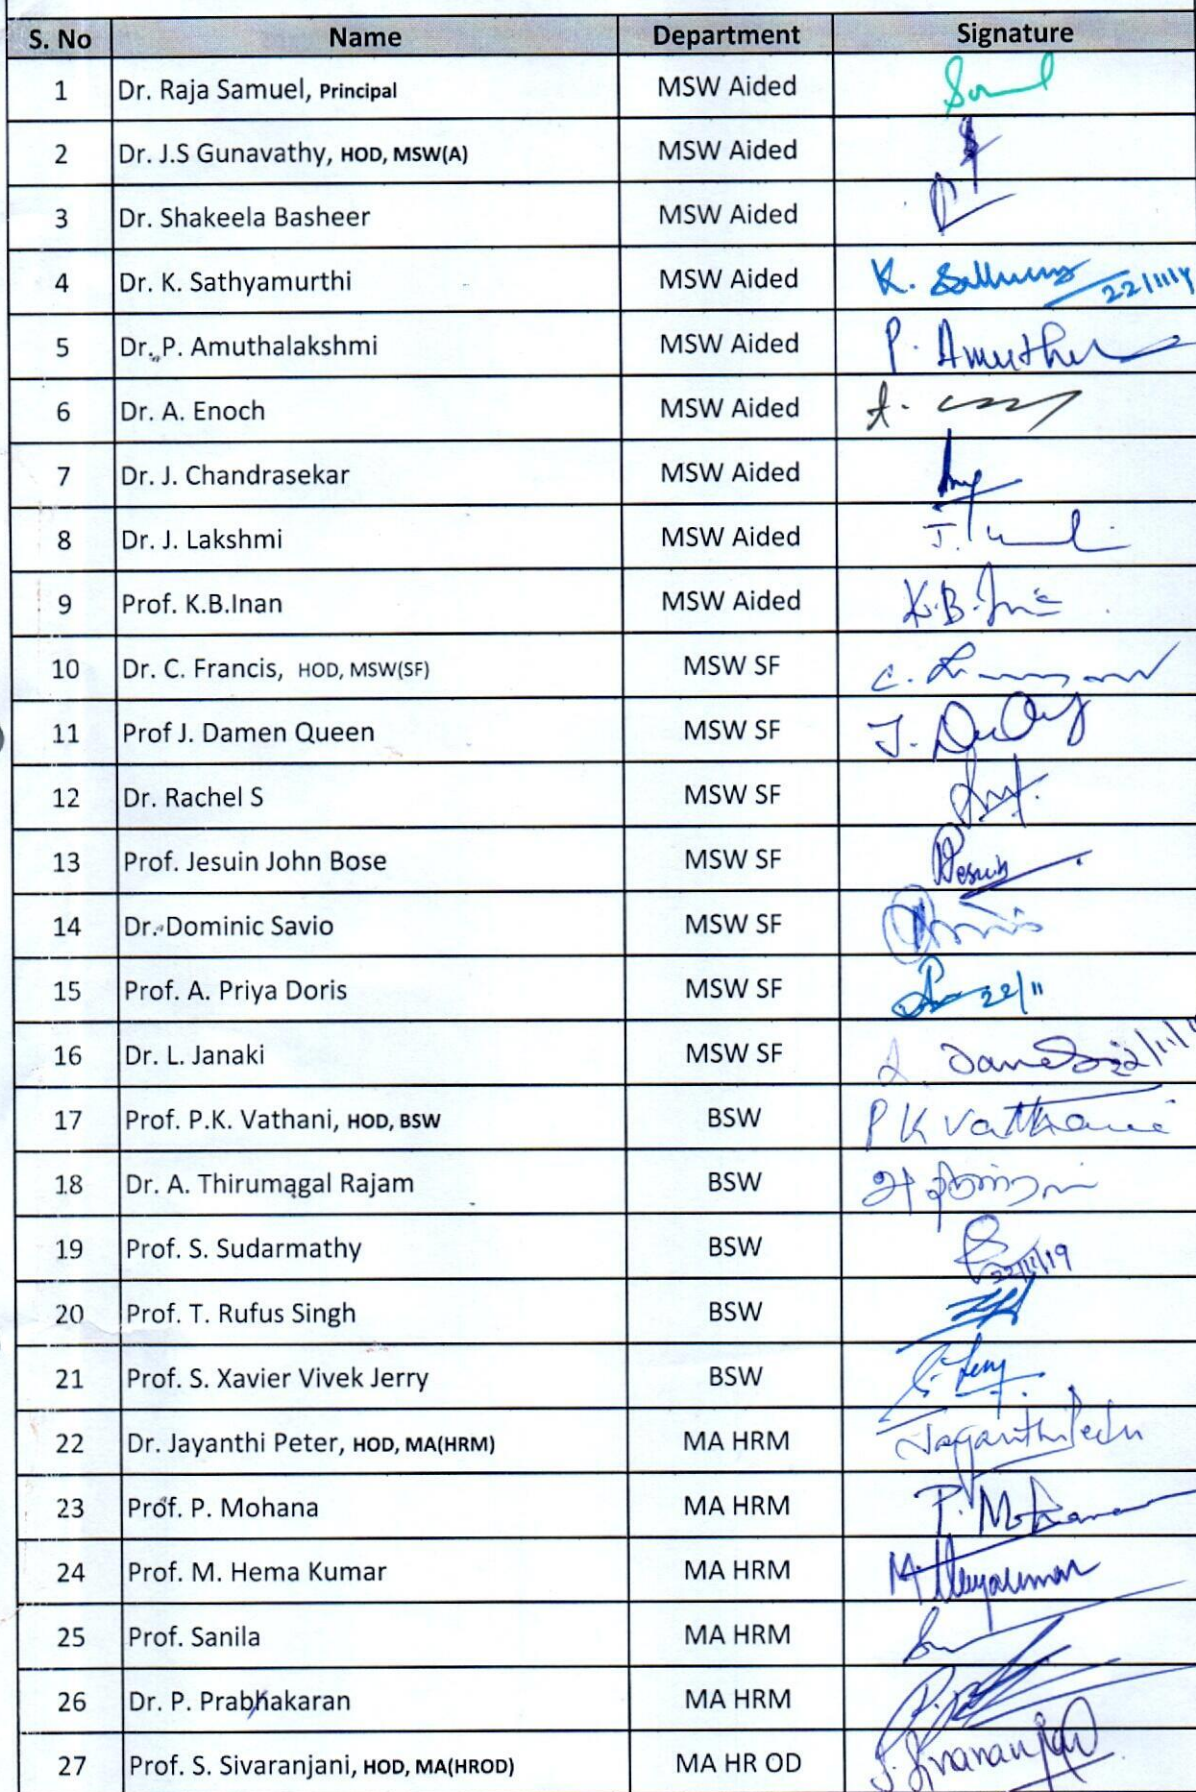 S. No Name Department Signature
1 Dr. Raja Samuel, Principal MSW Aided
2 Dr. J.S Gunavathy, HOD, MSW(A) MSW Aided
3 Dr. Shakeela Basheer MSW Aided
4 Dr. K. Sathyamurthi MSW Aided K. 22/11/19
5 Dr. P. Amuthalakshmi MSW Aided P. Amuthu
6 Dr. A. Enoch MSW Aided A.
7 Dr. J. Chandrasekar MSW Aided
8 Dr. J. Lakshmi MSW Aided J.
9 Prof. K.B.Inan MSW Aided K.B.
10 Dr. C. Francis, HOD, MSW(SF) MSW SF C.
11 Prof J. Damen Queen MSW SF J.
12 Dr. Rachel S MSW SF
13 Prof. Jesuin John Bose MSW SF
14 Dr. Dominic Savio MSW SF
15 Prof. A. Priya Doris MSW SF 22/11
16 Dr. L. Janaki MSW SF 22/11/1
17 Prof. P.K. Vathani, HOD, BSW BSW P K Vathani
18 Dr. A. Thirumagal Rajam BSW
19 Prof. S. Sudarmathy BSW 22/11/19
20 Prof. T. Rufus Singh BSW
21 Prof. S. Xavier Vivek Jerry BSW S. Jerry
22 Dr. Jayanthi Peter, HOD, MA(HRM) MA HRM Jayanthi Peter
23 Prof. P. Mohana MA HRM P. Mohana
24 Prof. M. Hema Kumar MA HRM M.
25 Prof. Sanila MA HRM
26 Dr. P. Prabhakaran MA HRM
27 Prof. S. Sivaranjani, HOD, MA(HROD) MA HR OD S. Sivaranjani